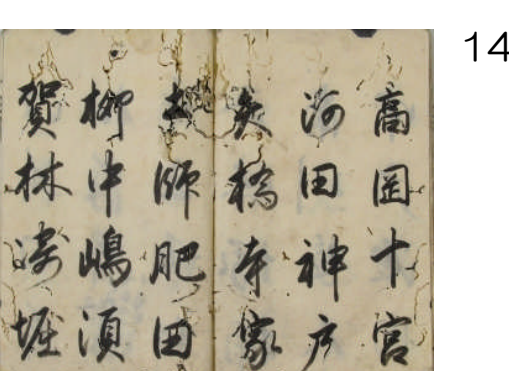 14
高岡十宮
河田神戸
矢橋寺家
土師肥田
柳中嶋須
賀林堀